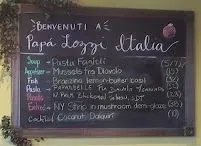 BENVENUTI A
Papá Lozzi Italia
Soup - Pasta Fagioli (5/7)
Appetizer - Mussels fra Diavolo (15)
Fish - Bronzino lemon-butter basil (32)
Pasta - PAPARDELLE Fra Diavolo
Panini -
Entreé - NY Strip in mushroom demi-glaze (38)
Cocktail Coconut Daiquiri (10)